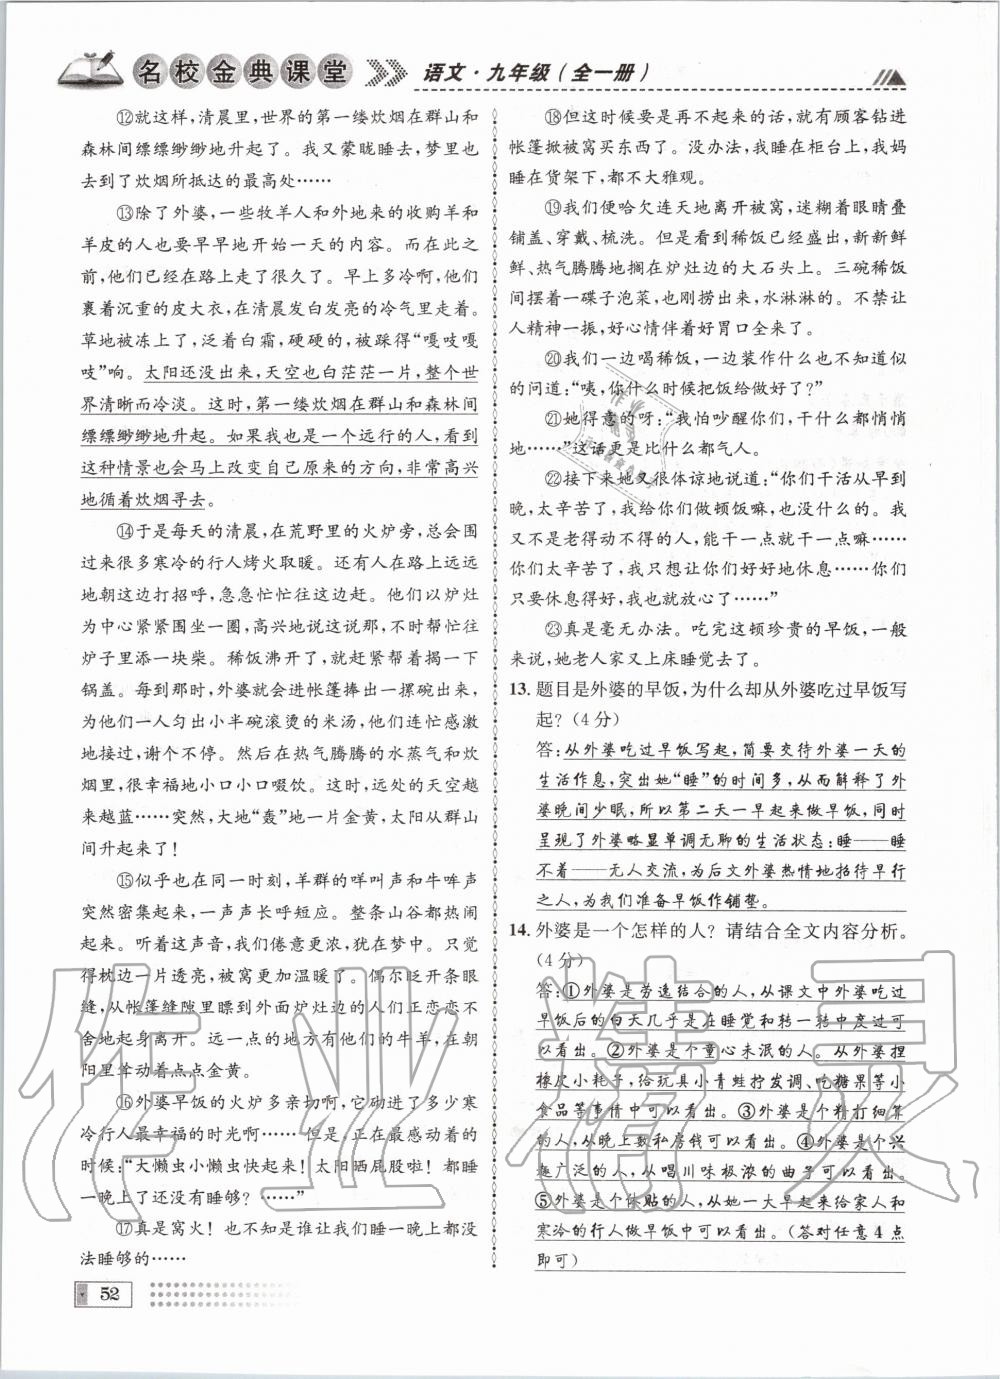 名校金典课堂 语文·九年级(全一册)
⑫就这样,清晨里,世界的第一缕炊烟在群山和
森林间缥缥缈缈地升起了。我又蒙眬睡去,梦里也
去到了炊烟所抵达的最高处……
⑬除了外婆,一些牧羊人和外地来的收购羊和
羊皮的人也要早早地开始一天的内容。而在此之
前,他们已经在路上走了很久了。早上多冷啊,他们
裹着沉重的皮大衣,在清晨发白发亮的冷气里走着。
草地被冻上了,泛着白霜,硬硬的,被踩得“嘎吱嘎
吱”响。太阳还没出来,天空也白茫茫一片,整个世
界清晰而冷淡。这时,第一缕炊烟在群山和森林间
缥缥缈缈地升起。如果我也是一个远行的人,看到
这种情景也会马上改变自己原来的方向,非常高兴
地循着炊烟寻去。
⑭于是每天的清晨,在荒野里的火炉旁,总会围
过来很多寒冷的行人烤火取暖。还有人在路上远远
地朝这边打招呼,急急忙忙往这边赶。他们以炉灶
为中心紧紧围坐一圈,高兴地说这说那,不时帮忙往
炉子里添一块柴。稀饭沸开了,就赶紧帮着揭一下
锅盖。每到那时,外婆就会进帐篷捧出一摞碗出来,
为他们一人匀出小半碗滚烫的米汤,他们连忙感激
地接过,谢个不停。然后在热气腾腾的水蒸气和炊
烟里,很幸福地小口小口啜饮。这时,远处的天空越
来越蓝……突然,大地“轰”地一片金黄,太阳从群山
间升起来了!
⑮似乎也在同一时刻,羊群的咩叫声和牛哞声
突然密集起来,一声声长呼短应。整条山谷都热闹
起来。听着这声音,我们倦意更浓,犹在梦中。只觉
得枕边一片透亮,被窝更加温暖了。偶尔眨开眼
缝,从帐篷缝隙里瞟到外面炉灶边的人们正恋恋不
舍地起身离开。远一点的地方有他们的牛羊,在朝
阳里耸动着点点金黄。
⑯外婆早饭的火炉多亲切啊,它融进了多少寒
冷行人最幸福的时光啊……但是,正在最感动着的
时候:“大懒虫小懒虫快起来!太阳晒屁股啦!都睡
一晚上了还没有睡够?……”
⑰真是窝火!也不知是谁让我们睡一晚上都没
法睡够的……
52
⑱但这时候要是再不起来的话,就有顾客钻进
帐篷掀被窝买东西了。没办法,我睡在柜台上,我妈
睡在货架下,都不大雅观。
⑲我们便哈欠连天地离开被窝,迷糊着眼睛叠
铺盖、穿戴、梳洗。但是看到稀饭已经盛出,新新鲜
鲜、热气腾腾地搁在炉灶边的大石头上。三碗稀饭
间摆着一碟子泡菜,也刚捞出来,水淋淋的。不禁让
人精神一振,好心情伴着好胃口全来了。
⑳我们一边喝稀饭,一边装作什么也不知道似
的问道:“咦,你什么时候把饭给做好了?”
㉑她得意的呀:“我怕吵醒你们,干什么都悄悄
地……”这话更是比什么都气人。
㉒接下来她又很体谅地说道:“你们干活从早到
晚,太辛苦了,我给你们做顿饭嘛,也没什么的。我
又不是老得动不得的人,能干一点就干一点嘛……
你们太辛苦了,让你们好好地休息……你们
只要休息得好,我也就放心了……”
㉓真是毫无办法。吃完这顿珍贵的早饭,一般
来说,她老人家又上床睡觉去了。
13. 题目是外婆的早饭,为什么却从外婆吃过早饭写
起?(4分)
答:从外婆吃过早饭写起,简要交待外婆一天的
生活作息,突出她“睡”的时间多,从而解释了外
婆晚间少眠,所以第二天一早起来做早饭,同时
呈现了外婆略显单调无聊的生活状态:睡——睡
不着——无人交流,为后文外婆热情地招待早行
之人,为我们准备早饭作铺垫。
14. 外婆是一个怎样的人?请结合全文内容分析。
(4分)
答:①外婆是劳逸结合的人,从课文中外婆吃过
早饭后的白天几乎是在睡觉和转一转中度过可
以看出。②外婆是个童心未泯的人。从外婆捏
橡皮小耗子,给玩具小青蛙拧发调、吃糖果等小
食品等事情中可以看出。③外婆是个精打细算
的人,从晚上数私房钱可以看出。④外婆是个兴
趣广泛的人,从唱川味极浓的曲子可以看出。
⑤外婆是个体贴的人,从她一大早起来给家人和
寒冷的行人做早饭中可以看出。(答对任意4点
即可)
作业精灵